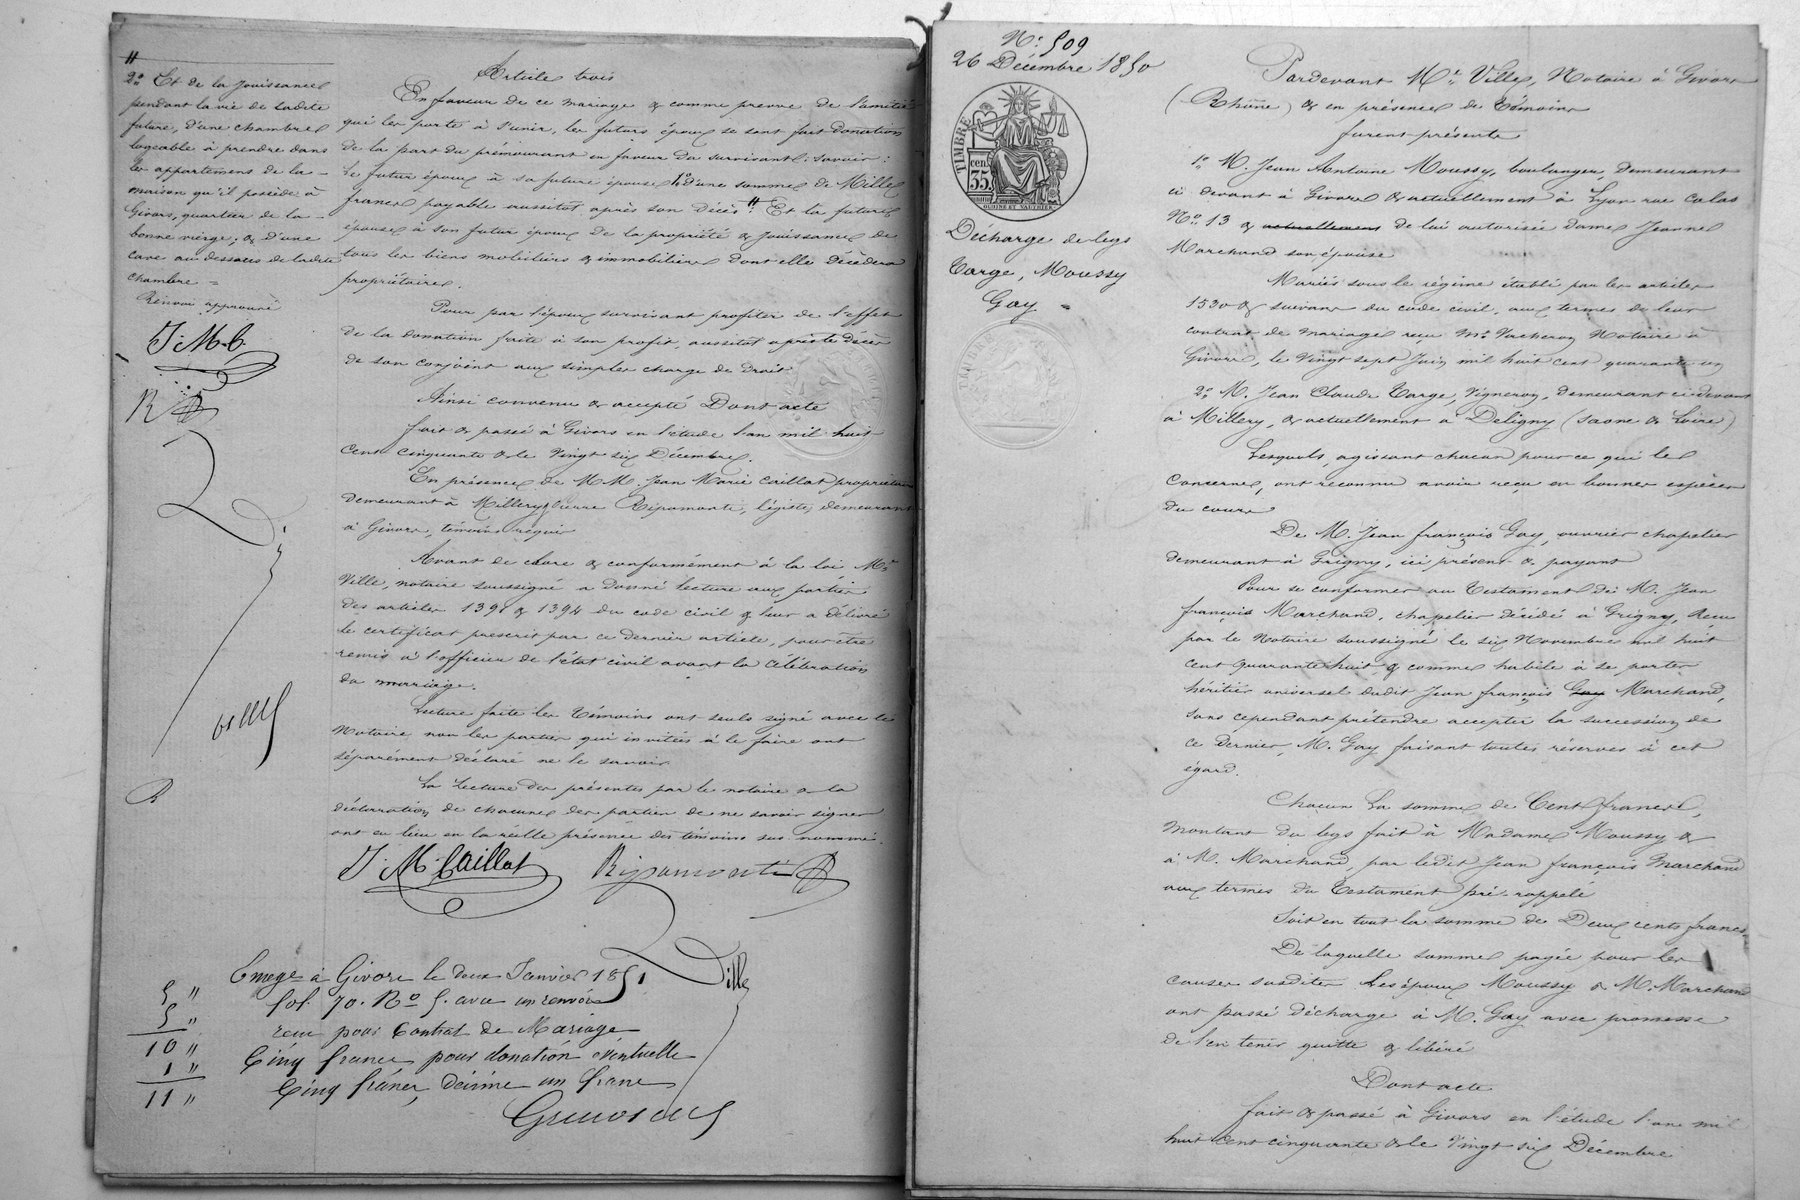 "
2.° Et de la jouissance
pendant la vie de ladite
future, d'une chambre
logeable à prendre dans
les appartemens de la
maison qu'il possède à
Givors, quartier de la
bonne vierge; & d'une
cave au dessous de ladite
chambre =
Renvoi approuvé
J. M. C.
R
Ville
R
Article trois
En faveur de ce mariage & comme preuve de l'amitié
qui les porte à s'unir, les futurs époux se sont fait donation
de la part du prémourant en faveur du survivant: savoir:
Le futur époux à sa future épouse 1.° d'une somme de Mille
francs payable aussitot après son décès " Et la future
épouse à son futur époux de la propriété & jouissance de
tous les biens mobiliers & immobiliers dont elle décèdera
propriétaire.
Pour par l'époux survivant profiter de l'effet
de la donation faite à son profit, aussitot après le décès
de son conjoint aux simples charge de droit.
Ainsi convenu & accepté Dont acte
fait & passé à Givors en l'étude l'an mil huit
cent cinquante & le vingt six Décembre.
En présence de MM. Jean Marie Caillat propriétaire
demeurant à Millery & Pierre Ripamonti, légiste, demeurant
à Givors, témoins requis
Avant de clore & conformément à la loi M.e
Ville, notaire soussigné a donné lecture aux parties
des articles 1391 & 1394 du code civil & leur a délivré
le certificat prescrit par ce dernier article, pour être
remis à l'officier de l'état civil avant la célébration
du mariage.
Lecture faite les témoins ont seuls signé avec le
Notaire, non les parties qui invitées à le faire ont
séparément déclaré ne le savoir.
La lecture des présentes par le notaire & la
déclaration de chacune des parties de ne savoir signer
ont eu lieu en la réelle présence des témoins sus nommés.
J. M. Caillat Ripamonti
Ville
Enreg.é à Givors le deux Janvier 1851
fol. 70. R.o 5. avec un renvoi
reçu pour Contrat de Mariage
Cinq francs pour donation éventuelle
Cinq francs, décime un franc
5 "
5 "
10 "
1 "
11 "
N.° 509
26 Décembre 1850
TIMBRE
35 cen.
OUDINÉ ET VAUTHIER
Décharge de legs
Targe, Moussy
Gay =
Pardevant M.e Ville, Notaire à Givors
(Rhône) & en présence de témoins
furent présents
1.° M. Jean Antoine Moussy, boulanger, demeurant
ci devant à Givors & actuellement à Lyon rue Calas
N.° 13 & actuellement de lui autorisée dame Jeanne
Marchand son épouse
Mariés sous le régime établi par les articles
1530 & suivans du code civil, aux termes de leur
contrat de mariage reçu M.e Vacheron Notaire à
Givors, le vingt sept Juin mil huit cent quarante un
2.° M. Jean Claude Targe, Vigneron, demeurant ci devant
à Millery, & actuellement à Deligny (saone & Loire)
Lesquels, agissant chacun pour ce qui les
concerne, ont reconnu avoir reçu en bonnes espèces
du cours
De M. Jean françois Gay, ouvrier chapelier
demeurant à Grigny, ici présent & payant
Pour se conformer au Testament de M. Jean
françois Marchand, chapelier décédé à Grigny, reçu
par le Notaire soussigné le six Novembre mil huit
cent quarante huit & comme habile à se porter
héritier universel dudit Jean françois Gay Marchand,
sans cependant prétendre accepter la succession de
ce dernier, M. Gay faisant toutes réserves à cet
égard.
Chacun la somme de Cent francs,
montant du legs fait à Madame Moussy &
à M. Marchand, par ledit Jean françois Marchand
aux termes du Testament pré-rappelé
Soit en tout la somme de Deux cents francs
De laquelle somme payée pour les
causes susdites les époux Moussy & M. Marchand
ont passé décharge à M. Gay avec promesse
de l'en tenir quitte & libéré
Dont acte
fait & passé à Givors en l'étude l'an mil
huit cent cinquante & le vingt six Décembre